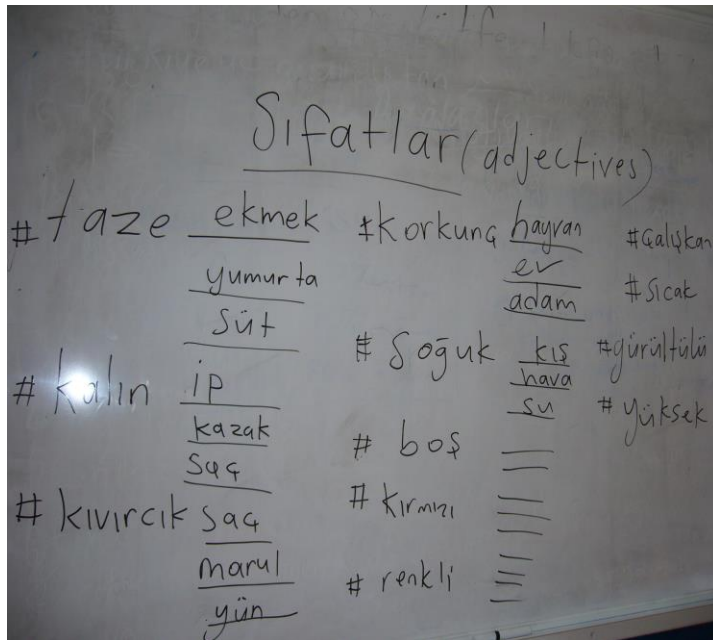 Sıfatlar (adjectives)
# taze ekmek
yumurta
süt
# kalın ip
kazak
saç
# kıvırcık saç
marul
yün
# korkunç hayvan
ev
adam
# soğuk kış
hava
su
# boş
# kırmızı
# renkli
# çalışkan
# sıcak
# gürültülü
# yüksek